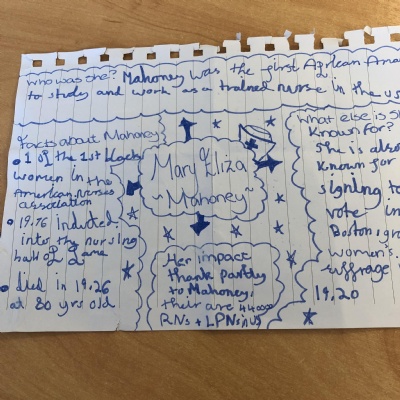 who was she? Mahoney was the first African Ame
to study and work as a trained nurse in the us
facts about Mahoney
1 of the 1st black
women in the
American nurses
association
19.76 inducted
into the nursing
hall of fame
died in 19.26
at 80 yrs old
Mary Eliza
~Mahoney~
Her impact
thank partly
to Mahoney,
their are 44000
RNs + LPNs in US
what else is s
known for?
She is also
known for
signing to
vote in
Boston,
women's
suffrage
19.20